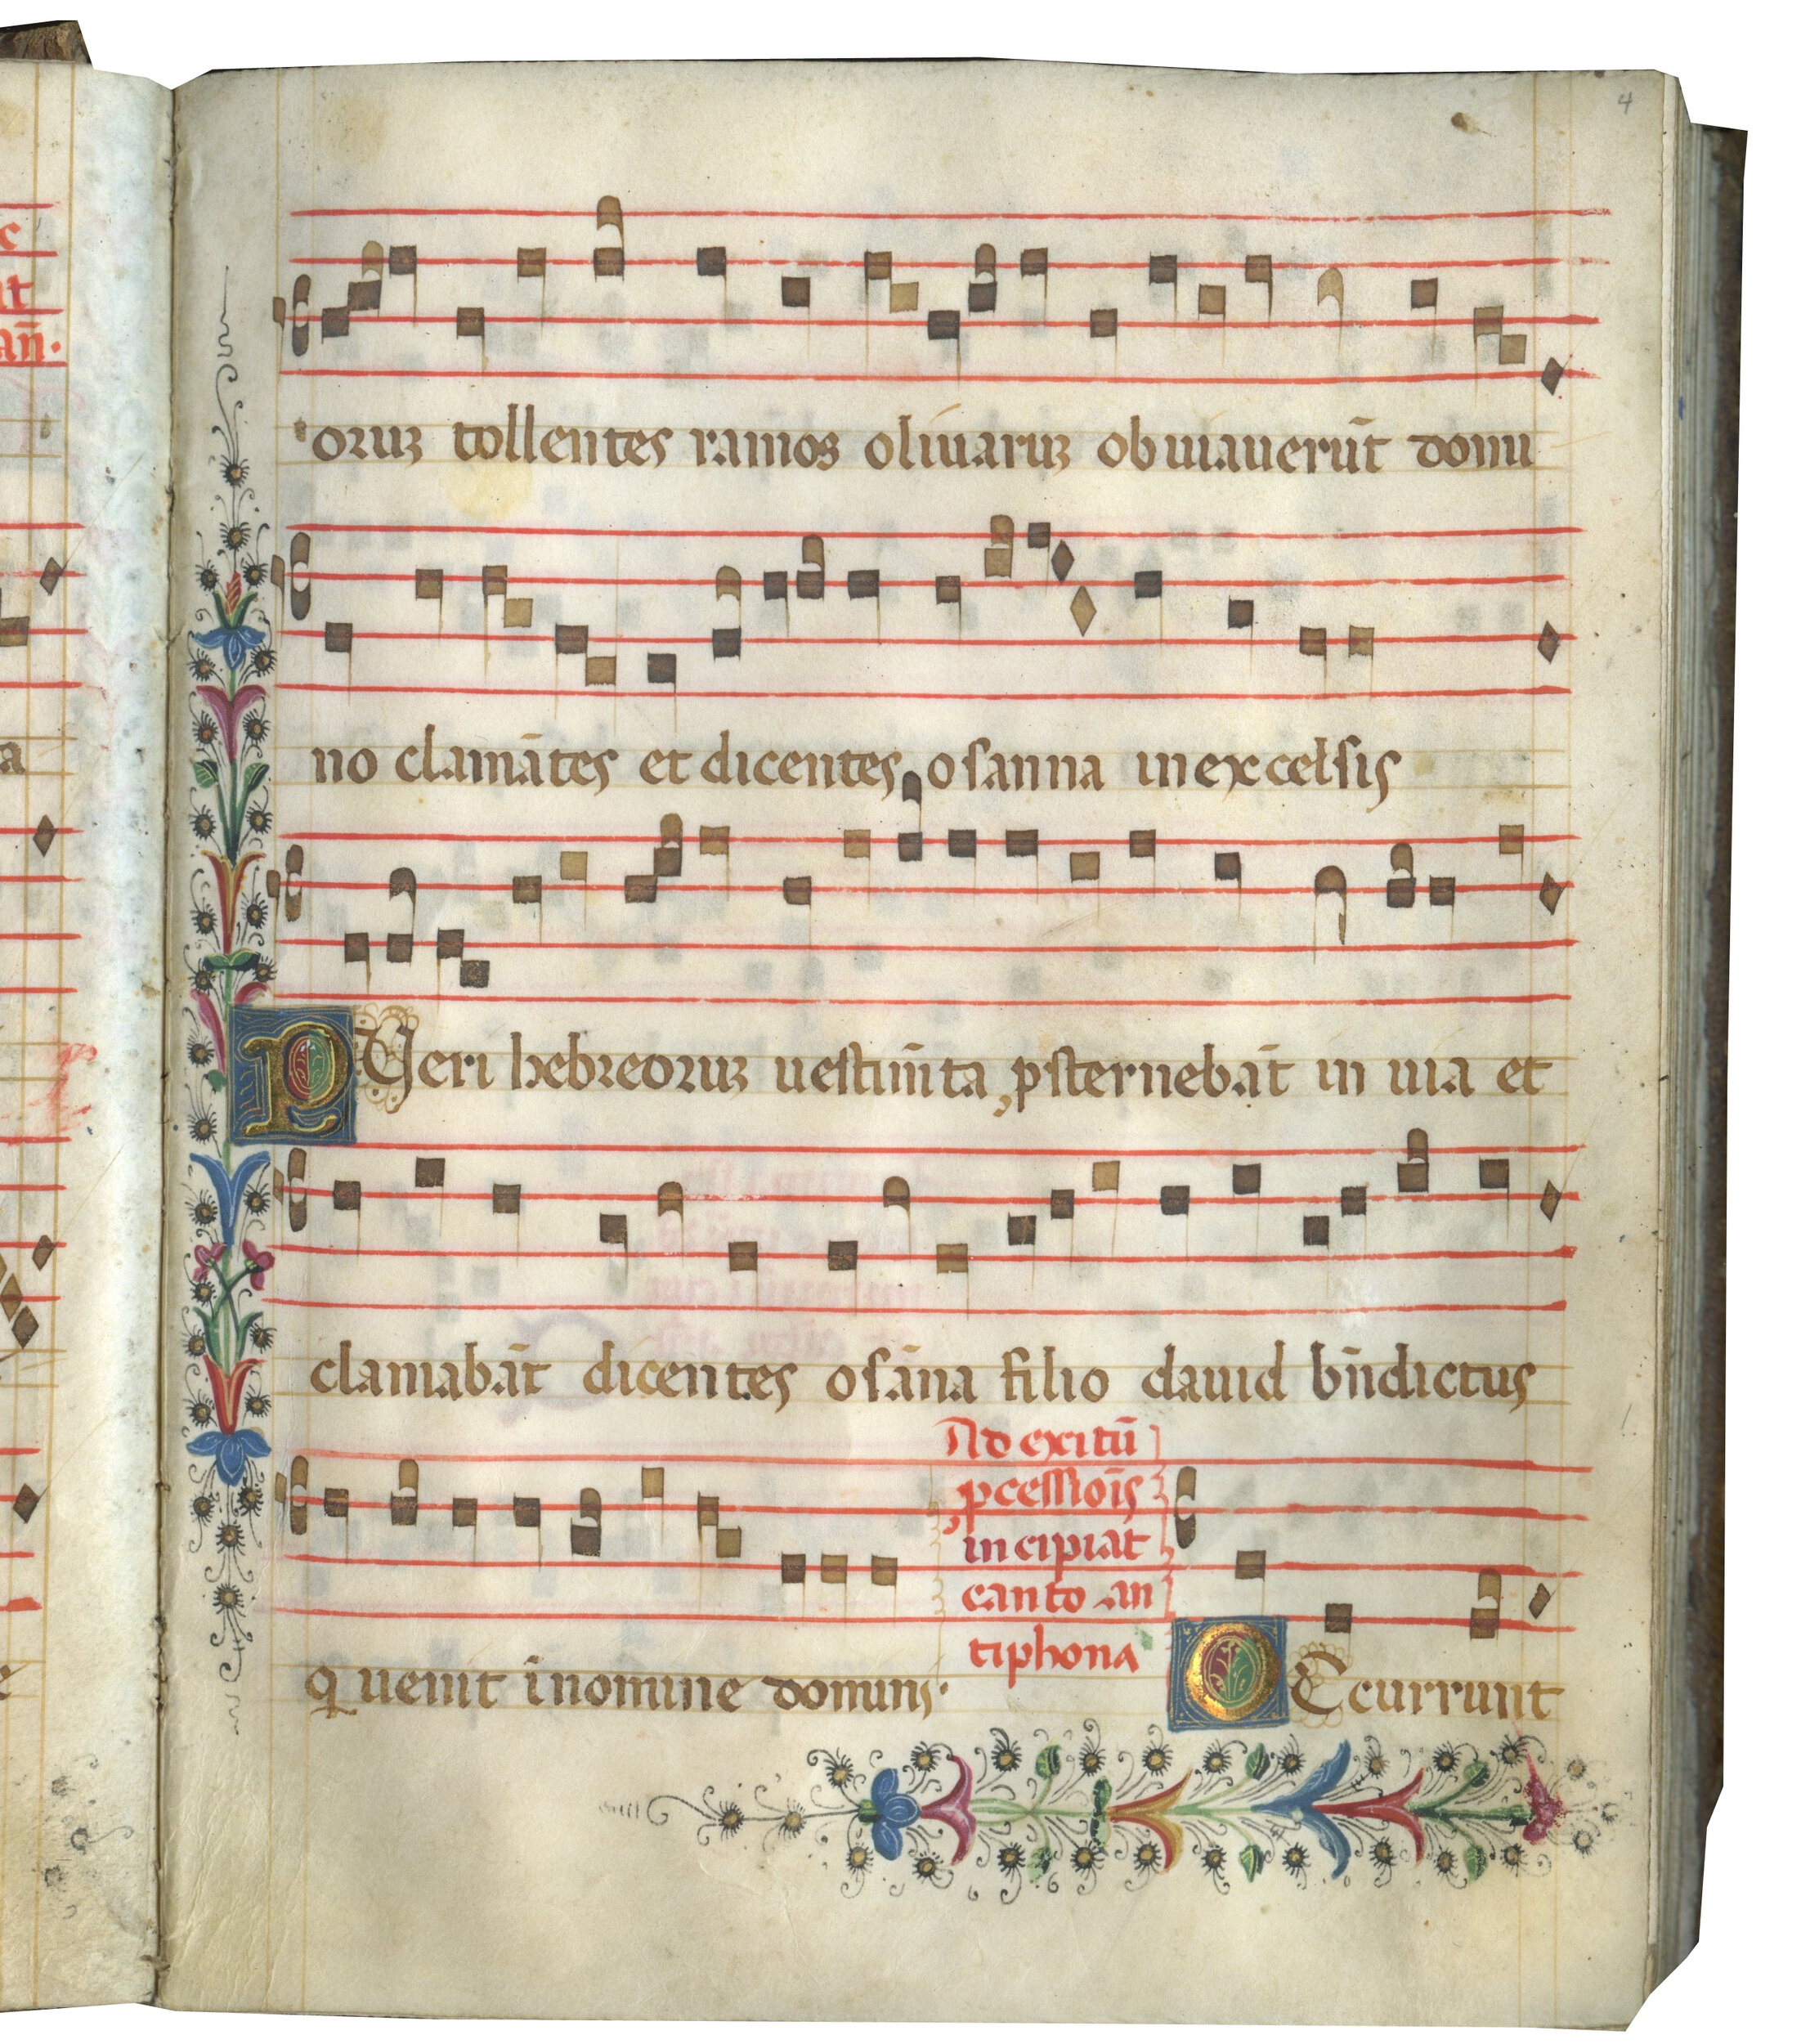 4
oruꝫ tollentes ramos oliuaruꝫ obuiauerūt domi
no clamātes et dicentes osanna in excelsis
PUeri hebreoruꝫ uestim̄ta ꝓsternebāt in uia et
clamabāt dicentes osāna filio dauid bn̄dictus
q uenit in omine domini·
Ad exitū
ꝓcessiōis
incipiat
canto an
tiphona
OCcurrunt